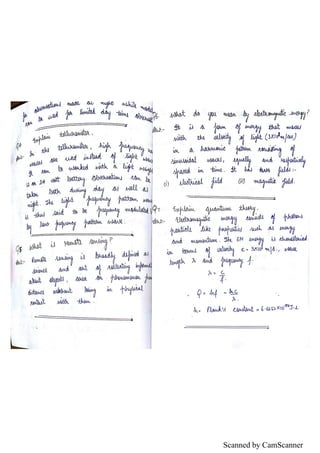 for observations made at night while model
can be used for limited day time observati
Qs Explain tellurometer.
Ans- In the tellurometer, high frequency ra
waves are used instead of light wave
It can be worked with a light weight
12 or 24 volt battery observations can be
taken both during day as well as
night. The light frequency pattern wave
is thus said to be frequency modulated
by low frequency pattern wave.
Q6 What is remote sensing?
Ans- Remote sensing is broadly defined as
science and art of collecting informat
about objects, area or phenomenon from
distance without being in physical
contact with them.
What do you mean by electromagnetic energy?
Ans- It is a form of energy that moves
with the velocity of light (3x10⁸ m/sec)
in a harmonic pattern consisting of
sinusoidal waves, equally and repetitively
spaced in time. It has two fields:-
(i) electrical field (ii) magnetic field
Q- Explain quantum theory.
Ans- Electromagnetic energy consists of photons
particle like properties such as energy
and momentum. The EM energy is characterised
in terms of velocity c = 3x10⁸ m/s, wave
length λ and frequency f.
λ = c/f
Q = hf = hc/λ
h = Plank's constant = 6.6252x10⁻³⁴ J-s.
Scanned by CamScanner